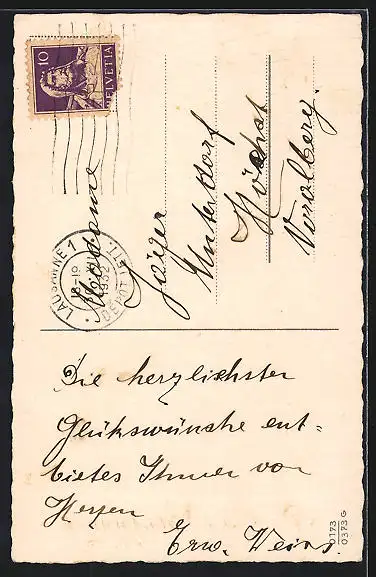 10
HELVETIA
LAUSANNE 1
1932
DÉPOT
Madame
Jäger
Unterdorf
Höchst
Voralberg.
Die herzlichster
Glükswünsche ent=
bietes Ihnen von
Herzen
Erw. Weiss.
0173
0373 G